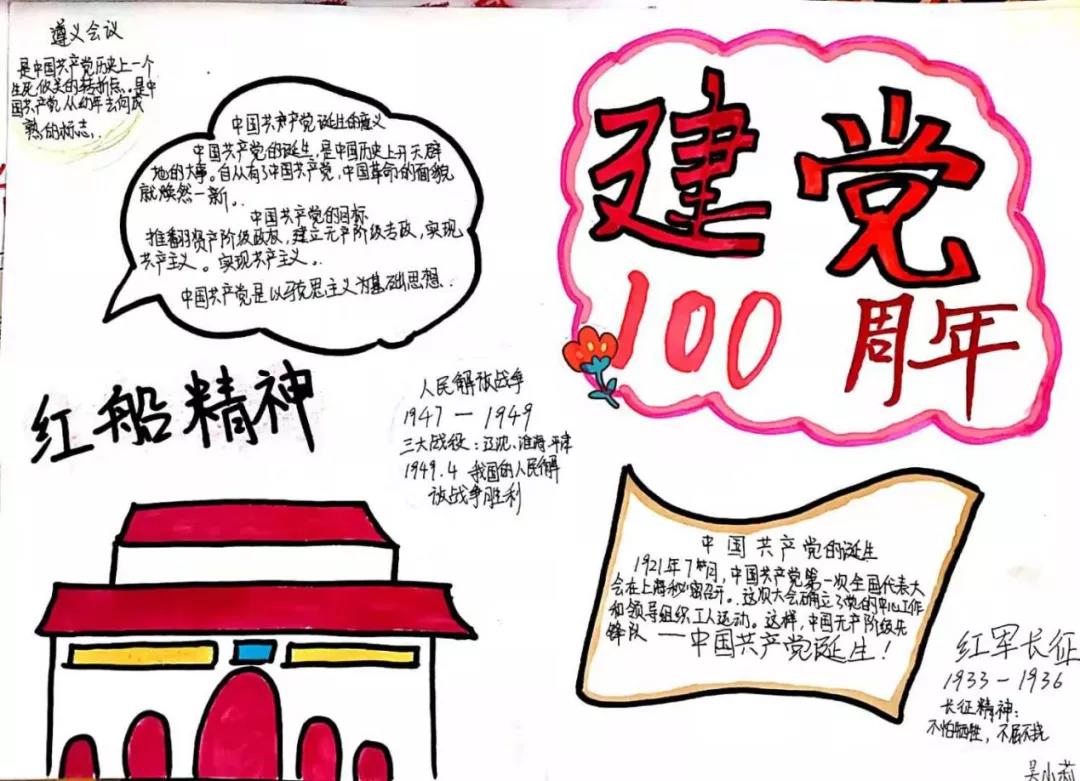 遵义会议
是中国共产党历史上一个
生死攸关的转折点。是中
国共产党从幼年走向成
熟的标志.
中国共产党诞生的意义
中国共产党的诞生,是中国历史上开天辟
地的大事。自从有了中国共产党,中国革命的面貌
就焕然一新。
中国共产党的目标
推翻资产阶级政权,建立无产阶级专政,实现
共产主义。实现共产主义。
中国共产党是以马克思主义为基础思想.
建党
100周年
红船精神
人民解放战争
1947—1949
三大战役:辽沈、淮海、平津
1949.4 我国的人民解
放战争胜利
中国共产党的诞生
1921年7月,中国共产党第一次全国代表大
会在上海秘密召开。这次大会确立了党的中心工作
和领导组织工人运动。这样,中国无产阶级先
锋队——中国共产党诞生!
红军长征
1933-1936
长征精神:
不怕牺牲,不屈不挠
吴小莉